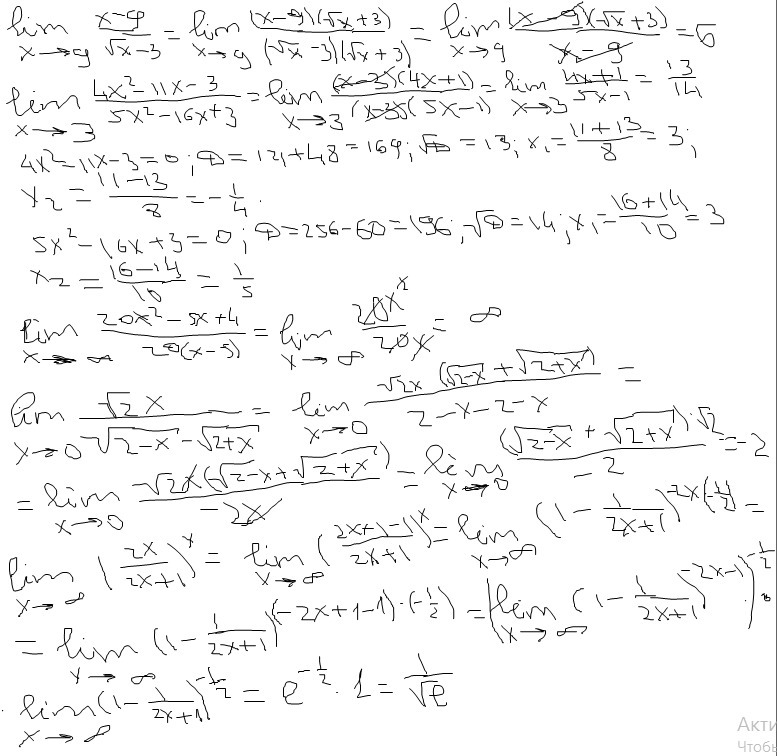 lim x→9 (x-9)/(√x-3) = lim x→9 ((x-9)(√x+3))/((√x-3)(√x+3)) = lim x→9 ((x-9)(√x+3))/(x-9) = 6
lim x→3 (4x²-11x-3)/(5x²-16x+3) = lim x→3 ((x-3)(4x+1))/((x-3)(5x-1)) = lim x→3 (4x+1)/(5x-1) = 13/14
4x²-11x-3=0; D=121+48=169; √D=13; x₁=(11+13)/8=3;
x₂=(11-13)/8=-1/4.
5x²-16x+3=0; D=256-60=196; √D=14; x₁=(16+14)/10=3
x₂=(16-14)/10=1/5
lim x→∞ (20x²-5x+4)/(20(x-5)) = lim x→∞ 20x²/20x = ∞
lim x→0 √2x/(√(2-x)-√(2+x)) = lim x→0 (√2x(√(2-x)+√(2+x)))/(2-x-2-x) =
= lim x→0 (√2x(√(2-x)+√(2+x)))/(-2x) = lim x→0 ((√(2-x)+√(2+x))·√2)/(-2) = -2
lim x→∞ (2x/(2x+1))^x = lim x→∞ ((2x+1-1)/(2x+1))^x = lim x→∞ (1-1/(2x+1))^(-2x(-1/2)) =
= lim x→∞ (1-1/(2x+1))^((-2x+1-1)·(-1/2)) = (lim x→∞ (1-1/(2x+1))^(-2x-1))^(-1/2) ·
· lim x→∞ (1-1/(2x+1))^(-1/2) = e^(-1/2) · 1 = 1/√e
Акти
Чтобы